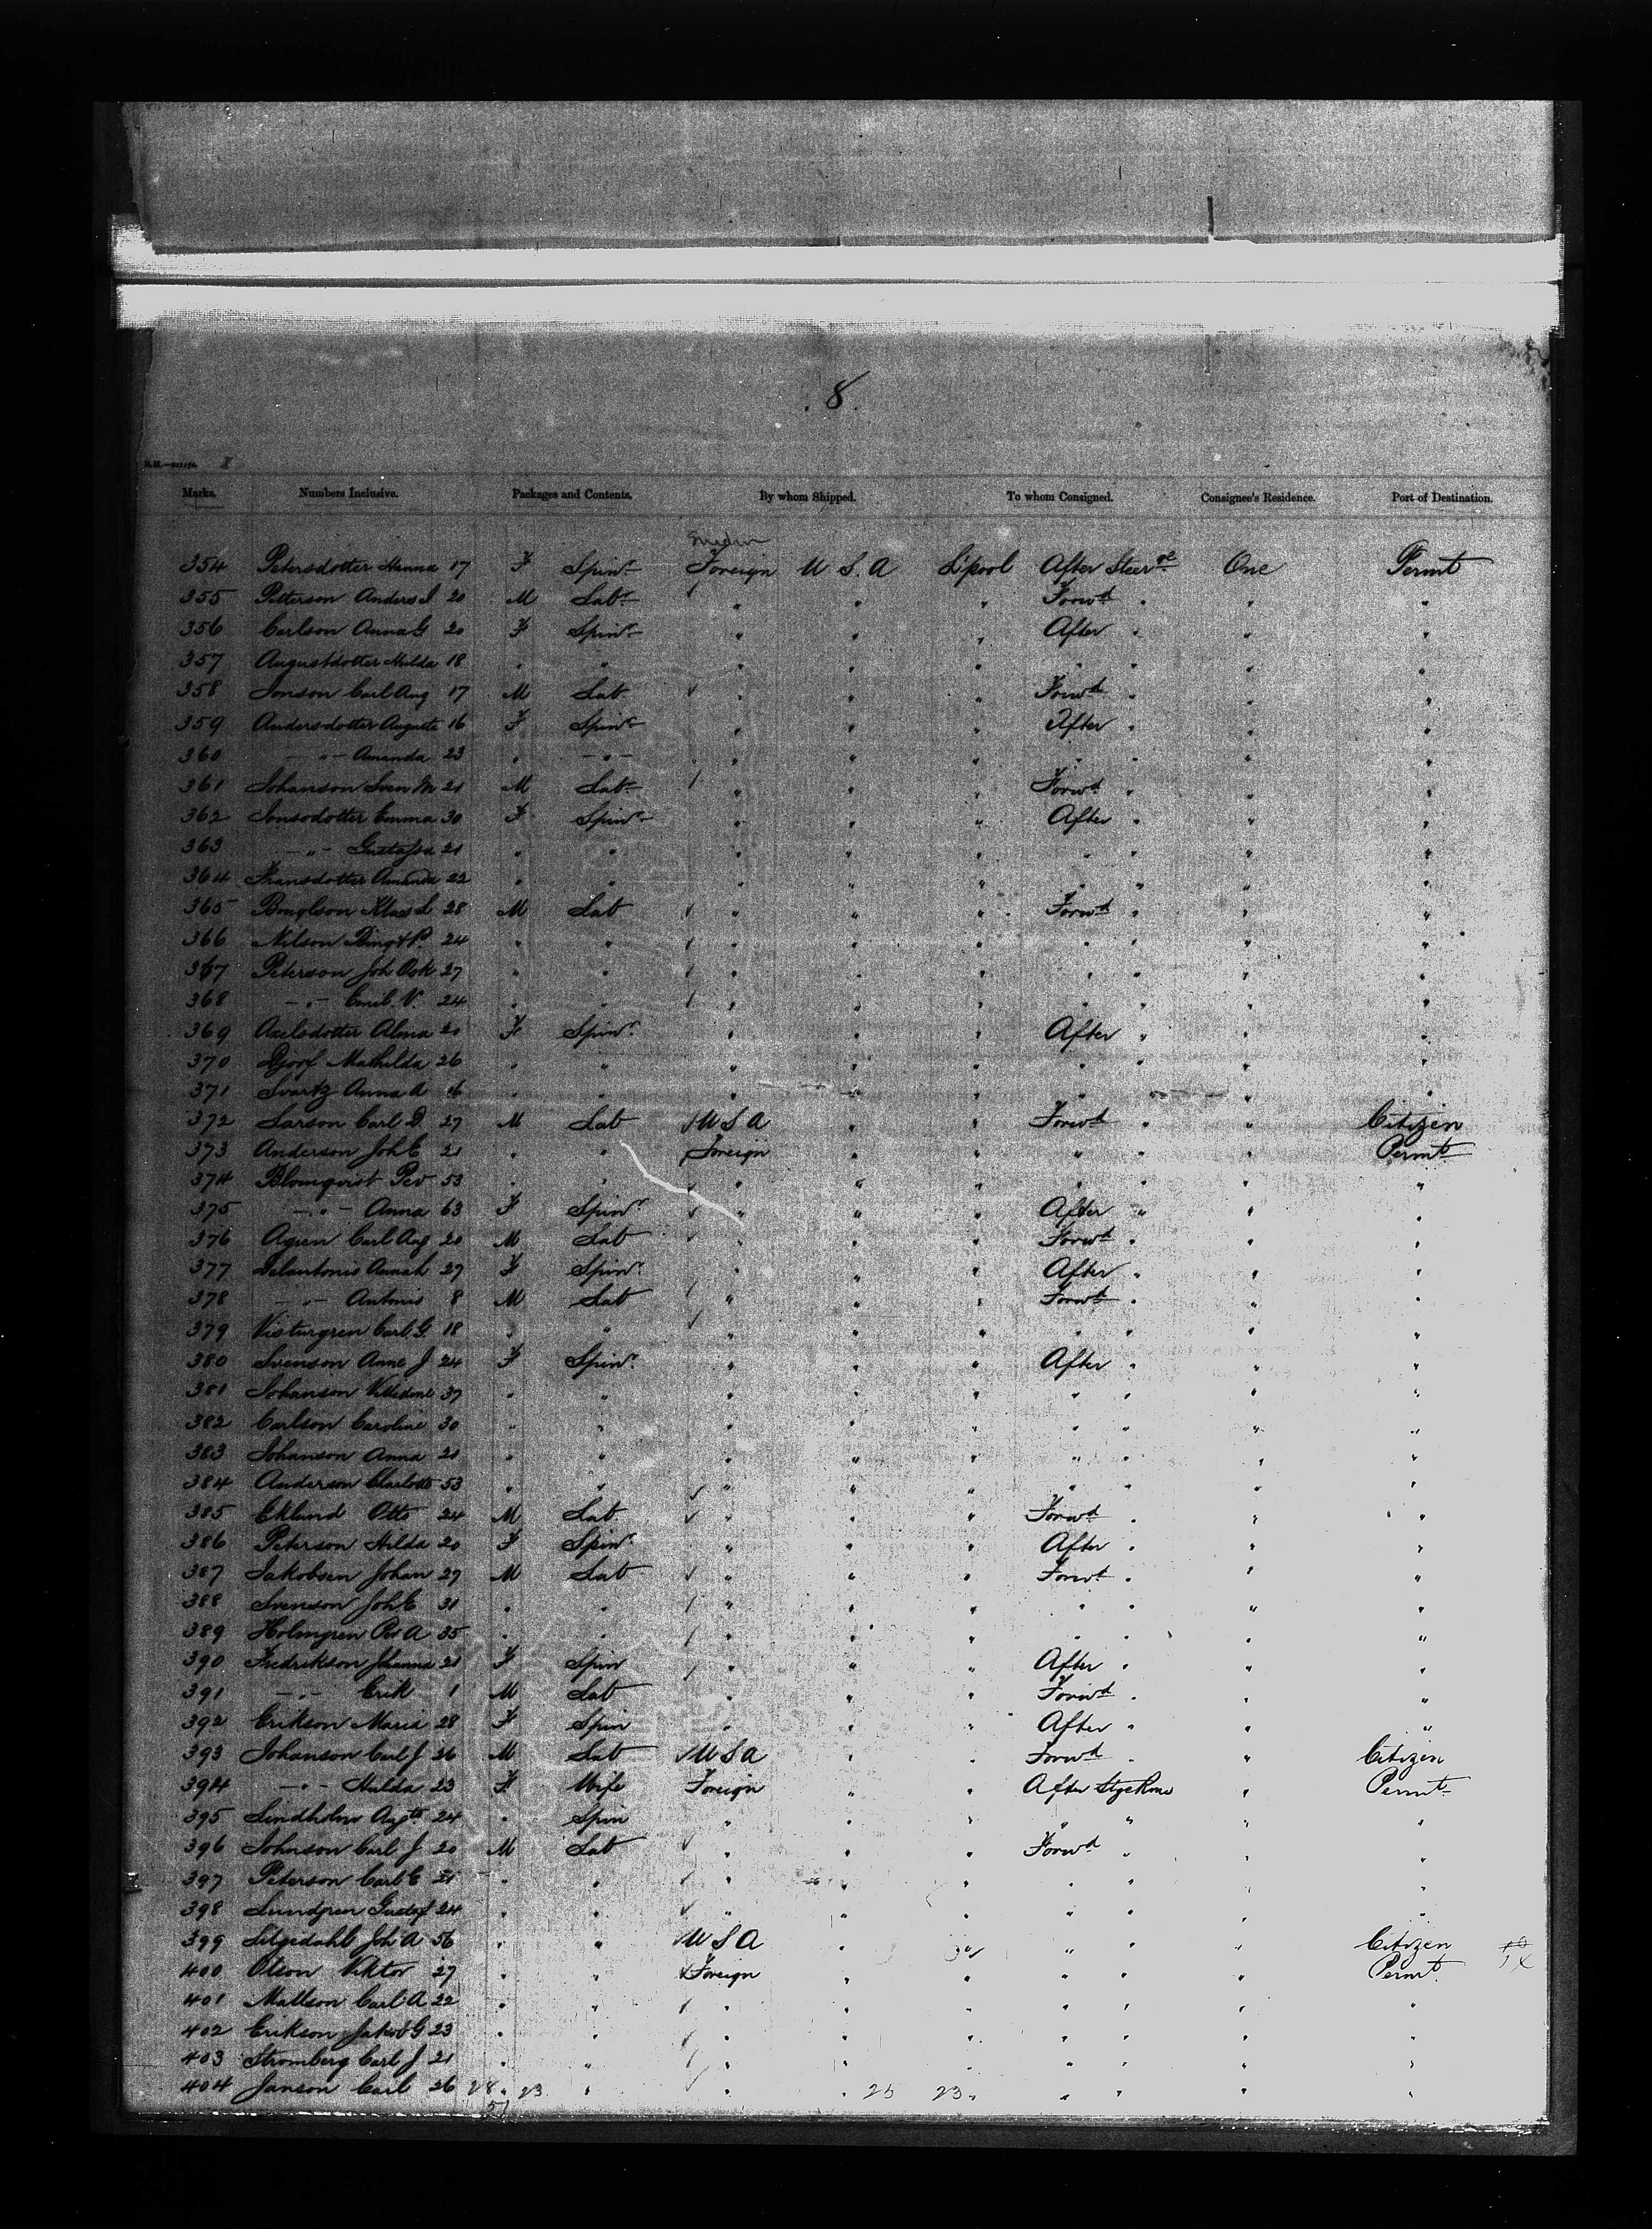 8.
Marks. Numbers Inclusive. Packages and Contents. By whom Shipped. To whom Consigned. Consignee's Residence. Port of Destination.
Sweden
354 Petersdotter Hanna 17 F Spinr Foreign U S. A L'pool After Steerge One Permt
355 Petterson Anders J 20 M Labr " " " Forwd " " "
356 Carlson Anna G 20 F Spinr " " " After " " "
357 Augustdotter Hilda 18 " " " " " " " " "
358 Jonson Carl Aug 17 M Lab " " " Forwd " " "
359 Andersdotter Augusta 16 F Spinr " " " After " " "
360 - " - Amanda 23 " - " - " " " " " " "
361 Johanson Sven M 21 M Labr " " " Forwd " " "
362 Jonsdotter Emma 30 F Spinr " " " After " " "
363 - " - Gustafva 21 " " " " " " " " "
364 Fransdotter Amanda 22 " " " " " " " " "
365 Klas L 28 M Lab " " " Forwd " " "
366 Nilson Bengt P. 24 " " " " " " " " "
367 Peterson Joh Osk 27 " " " " " " " " "
368 - " - Emil. V. 24 " " " " " " " " "
369 Axelsdotter Alma 20 F Spinr " " " After " " "
370 Mathilda 26 " " " " " " " " "
371 Svartz Anna A 16 " " " " " " " " "
372 Larson Carl D. 27 M Lab U S A " " Forwd " " Citizen
373 Anderson Joh E 21 " " Foreign " " " " " Permt
374 Blomqvist Per 53 " " " " " " " " "
375 - " - Anna 63 F Spinr " " " After " " "
376 Agren Carl Aug 20 M Lab " " " Forwd " " "
377 27 F Spinr " " " After " " "
378 - " - Antonis 8 M Lab " " " Forwd " " "
379 Carl. G. 18 " " " " " " " " "
380 Svenson Anna J 24 F Spinr " " " After " " "
381 Johanson 37 " " " " " " " " "
382 Carlson Caroline 30 " " " " " " " " "
383 Johanson Anna 21 " " " " " " " " "
384 Anderson Charlotte 53 " " " " " " " " "
385 Eklund Otto 24 M Lab " " " Forwd " " "
386 Peterson Hilda 20 F Spinr " " " After " " "
387 Jakobsen Johan 27 M Lab " " " Forwd " " "
388 Svenson Joh E 31 " " " " " " " " "
389 Holmgren Per A 35 " " " " " " " " "
390 Fredrikson Johanna 21 F Spin " " " After " " "
391 - " - Erik 1 M Lab " " " Forwd " " "
392 Erikson Maria 28 F Spin " " " After " " "
393 Johanson Carl J 26 M Lab U S A " " Forwd " " Citizen
394 - " - Hulda 23 F Wife Foreign " " After " Permt
395 Lindholm Augta 24 " Spin " " " " " " "
396 Johnson Carl J 20 M Lab " " " Forwd " " "
397 Peterson Carl E 21 " " " " " " " " "
398 Lundgren Gustaf 24 " " " " " " " " "
399 Joh A 56 " " U S A " " " " " Citizen
400 Olson Viktor 27 " " Foreign " " " " " Permt
401 Mattson Carl A 22 " " " " " " " " "
402 Erikson Jakob G 23 " " " " " " " " "
403 Stromberg Carl J 21 " " " " " " " " "
404 Janson Carl 26 28 " 23 " " " 25 23 " " " " "
51